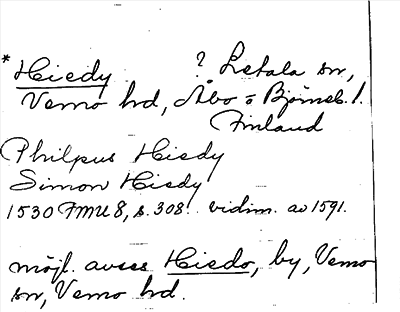 * Hiedy ? Letala sn,
Vemo hd, Åbo o Björneb. l.
Finland
Philpus Hiedy
Simon Hiedy
1530 FMU 8, s. 308. vidim. av 1591.
möjl. avses Hiedo, by, Vemo
sn, Vemo hd.